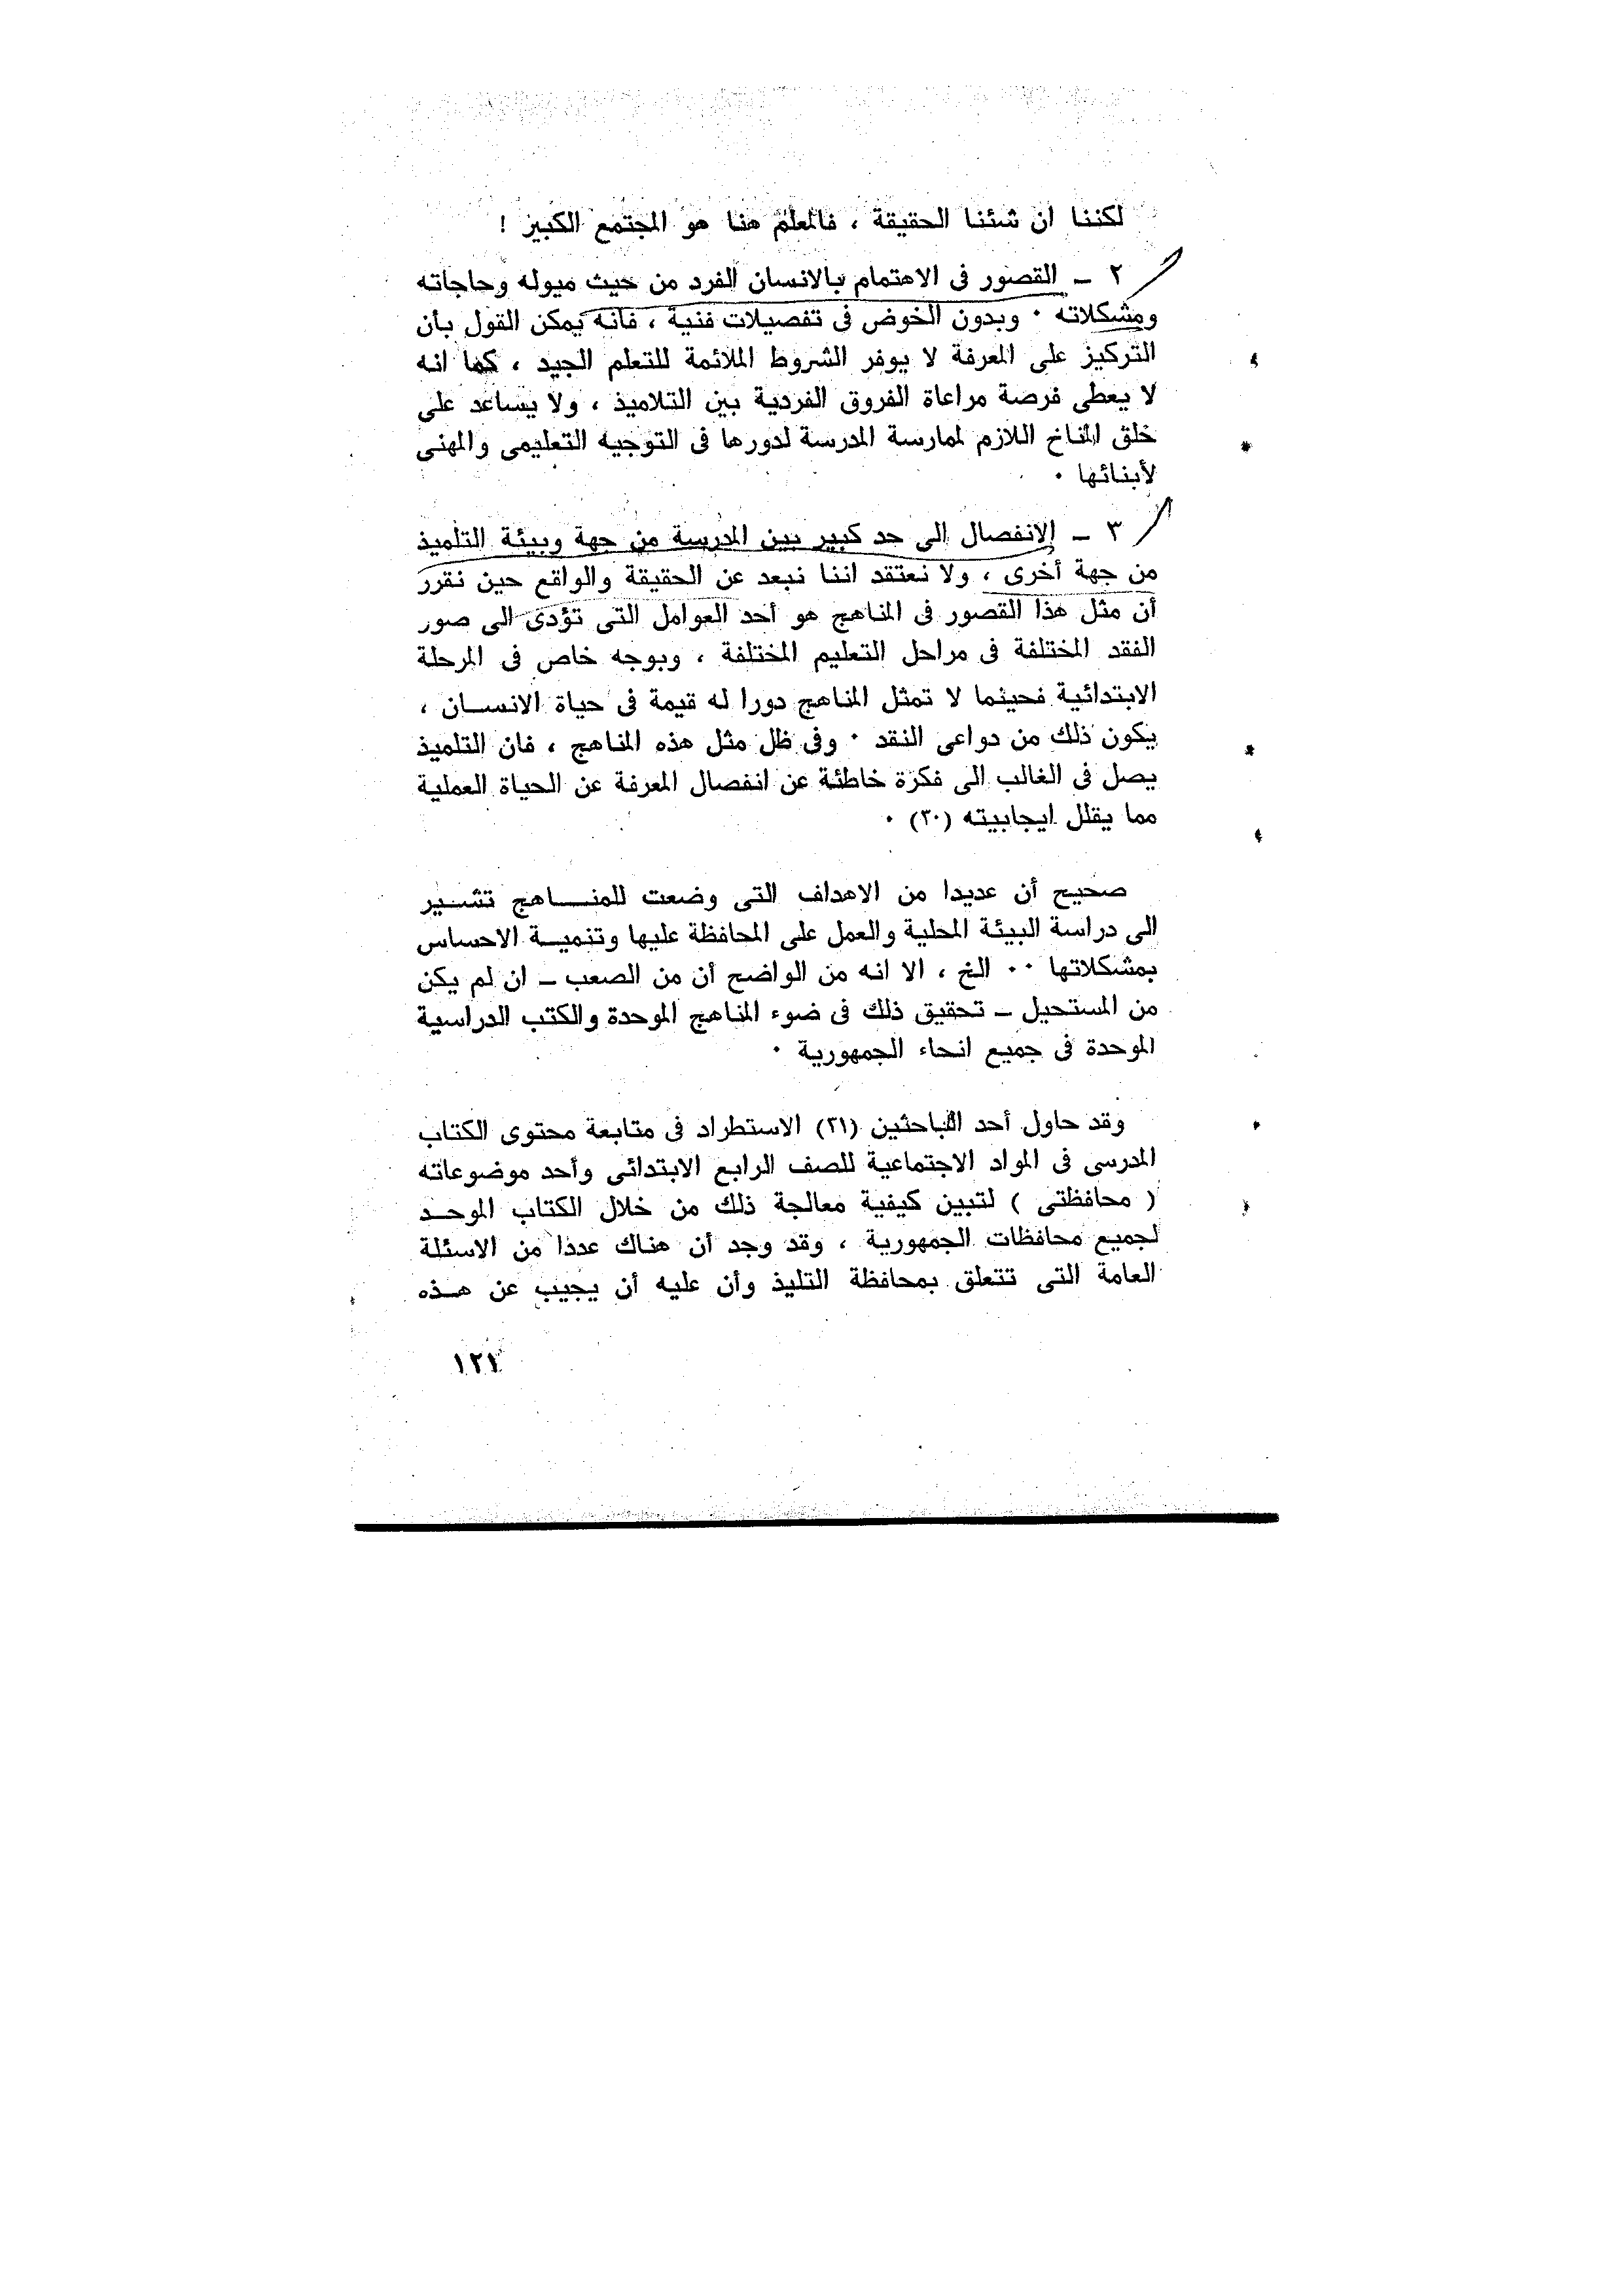 لكننا ان شئنا الحقيقة ، فالمعلم هنا هو المجتمع الكبير !
٢ ـ القصور فى الاهتمام بالانسان الفرد من حيث ميوله وحاجاته
ومشكلاته ٠ وبدون الخوض فى تفصيلات فنية ، فانه يمكن القول بأن
التركيز على المعرفة لا يوفر الشروط الملائمة للتعلم الجيد ، كما انه
لا يعطى فرصة مراعاة الفروق الفردية بين التلاميذ ، ولا يساعد على
خلق المناخ اللازم لممارسة المدرسة لدورها فى التوجيه التعليمى والمهنى
لأبنائها ٠
٣ ـ الانفصال الى حد كبير بين المدرسة من جهة وبيئة التلميذ
من جهة أخرى ، ولا نعتقد اننا نبعد عن الحقيقة والواقع حين نقرر
أن مثل هذا القصور فى المناهج هو أحد العوامل التى تؤدى الى صور
الفقد المختلفة فى مراحل التعليم المختلفة ، وبوجه خاص فى المرحلة
الابتدائية فحينما لا تمثل المناهج دورا له قيمة فى حياة الانســان ،
يكون ذلك من دواعى النقد ٠ وفى ظل مثل هذه المناهج ، فان التلميذ
يصل فى الغالب الى فكرة خاطئة عن انفصال المعرفة عن الحياة العملية
مما يقلل ايجابيته (٣٠) ٠
صحيح أن عديدا من الاهداف التى وضعت للمنــــاهج تشــير
الى دراسة البيئة المحلية والعمل على المحافظة عليها وتنميــة الاحساس
بمشكلاتها ٠٠ الخ ، الا انه من الواضح أن من الصعب ـ ان لم يكن
من المستحيل ـ تحقيق ذلك فى ضوء المناهج الموحدة والكتب الدراسية
الموحدة فى جميع انحاء الجمهورية ٠
وقد حاول أحد الباحثين (٣١) الاستطراد فى متابعة محتوى الكتاب
المدرسى فى المواد الاجتماعية للصف الرابع الابتدائى وأحد موضوعاته
( محافظتى ) لتبين كيفية معالجة ذلك من خلال الكتاب الموحــد
لجميع محافظات الجمهورية ، وقد وجد أن هناك عددا من الاسئلة
العامة التى تتعلق بمحافظة التليذ وأن عليه أن يجيب عن هــذه
١٢١